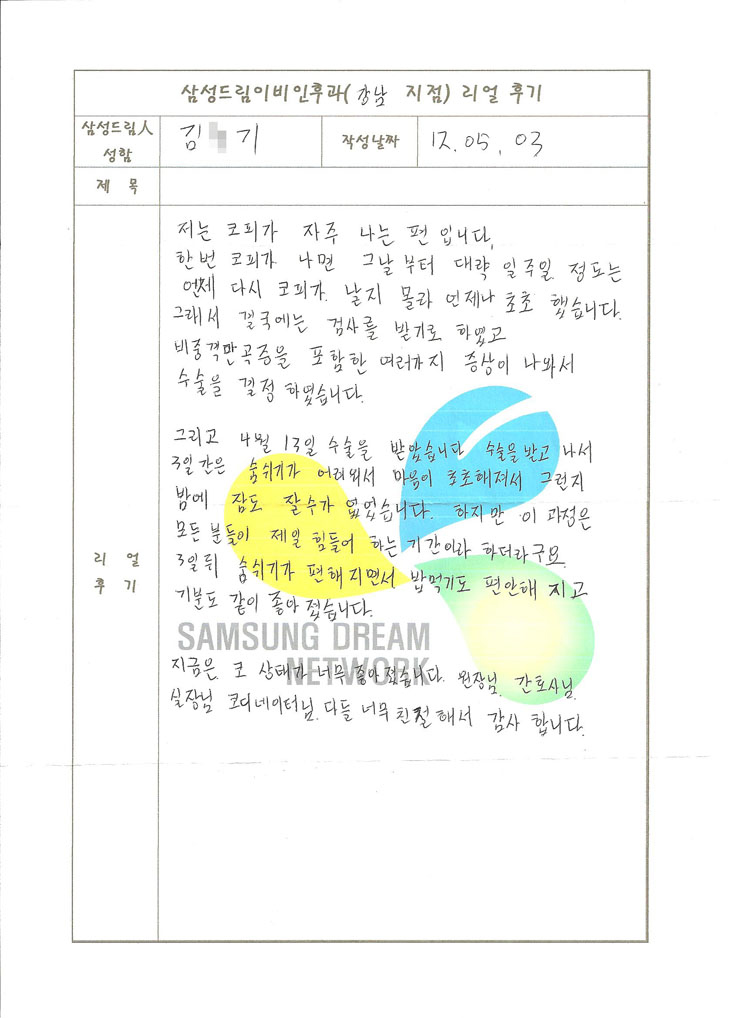 삼성드림이비인후과(강남 지점) 리얼 후기
삼성드림人
성함
김 기
작성날짜
12.05.03
제 목
리 얼
후 기
저는 코피가 자주 나는 편 입니다.
한번 코피가 나면 그날부터 대략 일주일 정도는
언제 다시 코피가 날지 몰라 언제나 초초 했습니다.
그래서 결국에는 검사를 받기로 하였고
비중격만곡증을 포함한 여러가지 증상이 나와서
수술을 결정 하였습니다.
그리고 4월 13일 수술을 받았습니다 수술을 받고 나서
3일간은 숨쉬기가 어려워서 마음이 초초해져서 그런지
밤에 잠도 잘수가 없었습니다. 하지만 이 과정은
모든 분들이 제일 힘들어 하는 기간이라 하더라구요
3일뒤 숨쉬기가 편해지면서 밥먹기도 편안해 지고
기분도 같이 좋아 졌습니다.
SAMSUNG DREAM
NETWORK
지금은 코 상태가 너무 좋아졌습니다. 원장님. 간호사님.
실장님 코디네이터님. 다들 너무 친절해서 감사 합니다.